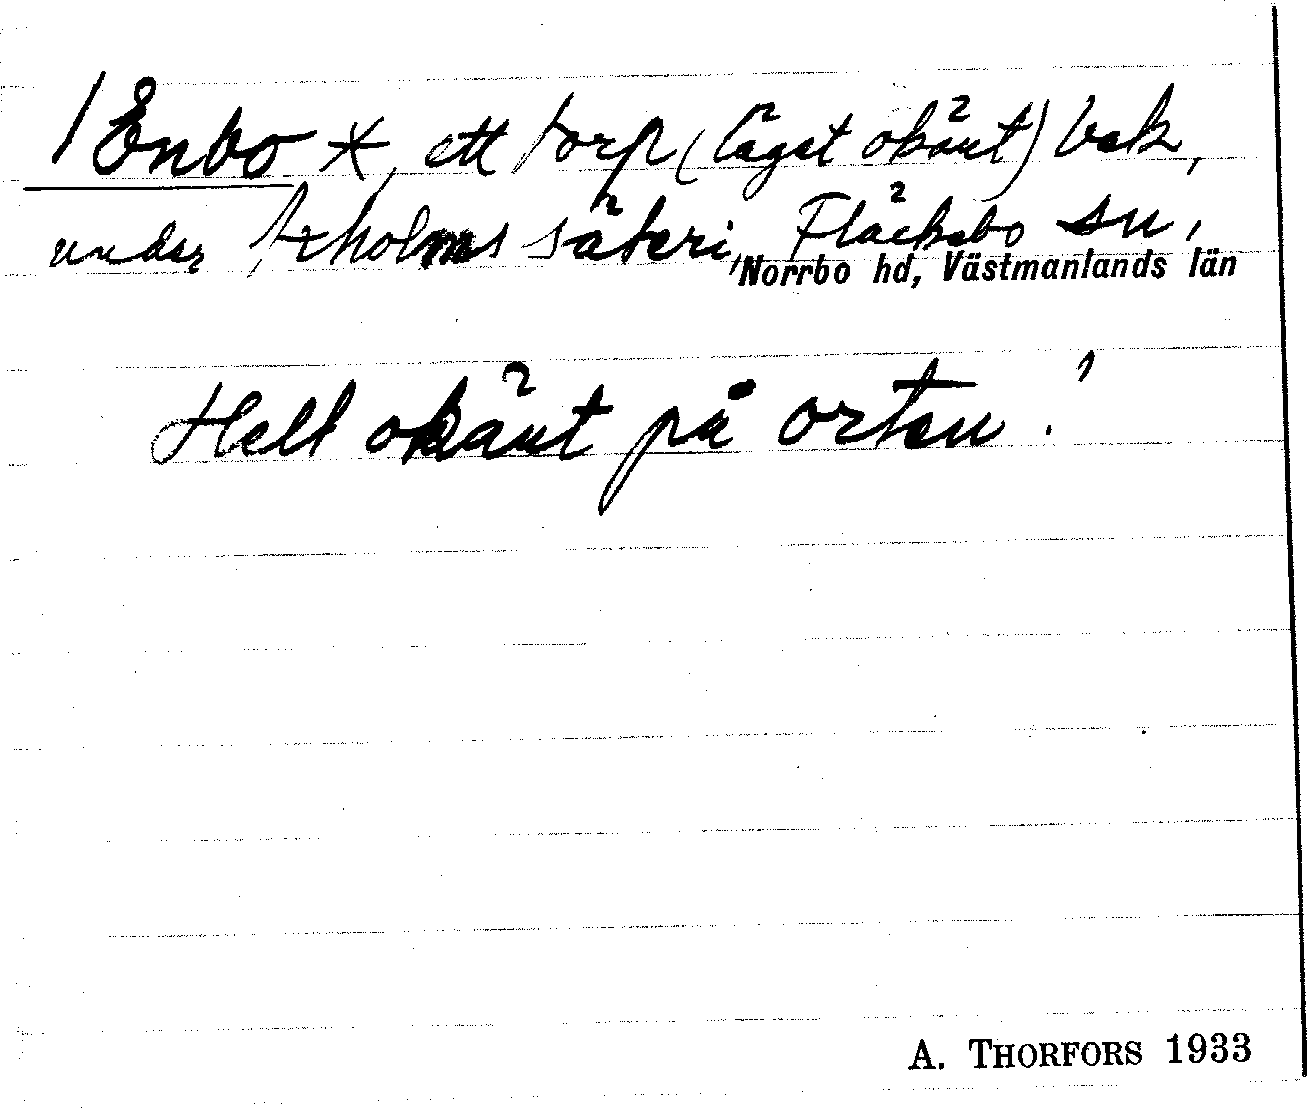 Enbo *, ett torp (läget okänt) bek,
under Axholms säteri, Fläckebo sn,
Norrbo hd, Västmanlands län
Helt okänt på orten!
A. THORFORS 1933